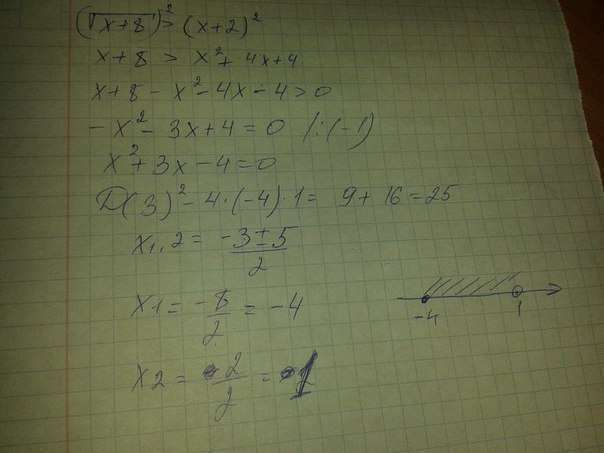 (√x+8)² > (x+2)²
x+8 > x²+ 4x+4
x+8 - x² - 4x - 4 > 0
- x² - 3x + 4 = 0 /:(-1)
x² + 3x - 4 = 0
D(3)² - 4·(-4)·1 = 9 + 16 = 25
x1,2 = -3±5/2
x1 = -8/2 = -4
x2 = 2/2 = 1
-4 1